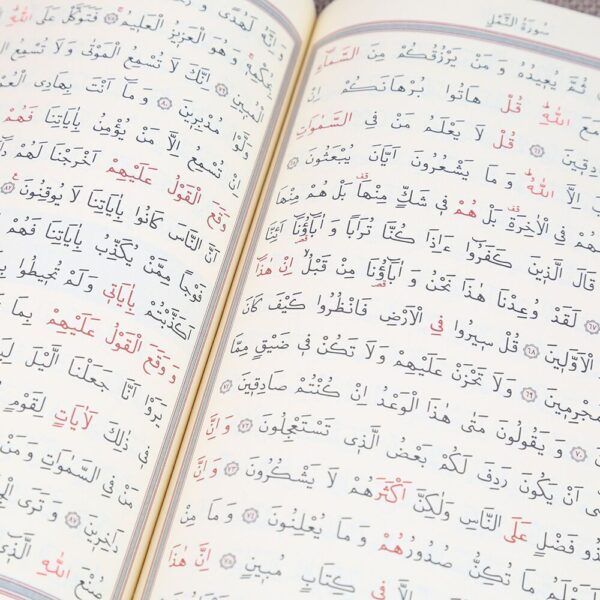 سُورَةُ النَّمْلِ
ثُمَّ يُعِيدُهُ وَمَنْ يَرْزُقُكُمْ مِنَ السَّمَاءِ
مَعَ اللّٰهِ قُلْ هَاتُوا بُرْهَانَكُمْ اِنْ
دِقِينَ ٦٤ قُلْ لَا يَعْلَمُ مَنْ فِي السَّمٰوَاتِ
اِلَّا اللّٰهُ وَمَا يَشْعُرُونَ اَيَّانَ يُبْعَثُونَ ٦٥
هُمْ فِي الْاٰخِرَةِ بَلْ هُمْ فِي شَكٍّ مِنْهَا بَلْ هُمْ مِنْهَا
قَالَ الَّذِينَ كَفَرُوا ءَاِذَا كُنَّا تُرَابًا وَاٰبَاؤُنَا اَئِنَّا
٦٧ لَقَدْ وُعِدْنَا هٰذَا نَحْنُ وَاٰبَاؤُنَا مِنْ قَبْلُ اِنْ هٰذَا
الْاَوَّلِينَ ٦٨ قُلْ سِيرُوا فِي الْاَرْضِ فَانْظُرُوا كَيْفَ كَانَ
مُجْرِمِينَ ٦٩ وَلَا تَحْزَنْ عَلَيْهِمْ وَلَا تَكُنْ فِي ضَيْقٍ مِمَّا
٧٠ وَيَقُولُونَ مَتٰى هٰذَا الْوَعْدُ اِنْ كُنْتُمْ صَادِقِينَ ٧١
اَنْ يَكُونَ رَدِفَ لَكُمْ بَعْضُ الَّذِي تَسْتَعْجِلُونَ ٧٢ وَاِنَّ
ذُو فَضْلٍ عَلَى النَّاسِ وَلٰكِنَّ اَكْثَرَهُمْ لَا يَشْكُرُونَ ٧٣ وَاِنَّ
لَمُ مَا تُكِنُّ صُدُورُهُمْ وَمَا يُعْلِنُونَ ٧٤ وَمَا مِنْ
فِي كِتَابٍ مُبِينٍ ٧٥ اِنَّ هٰذَا
وَاِنَّهُ لَهُدًى وَ
بِحُكْمِهِ وَهُوَ الْعَزِيزُ الْعَلِيمُ ٧٨ فَتَوَكَّلْ عَلَى اللّٰهِ
الْمُبِينِ ٧٩ اِنَّكَ لَا تُسْمِعُ الْمَوْتٰى وَلَا تُسْمِعُ ال
وَلَّوْا مُدْبِرِينَ ٨٠ وَمَا اَنْتَ بِهَادِي الْعُمْ
اِنْ تُسْمِعُ اِلَّا مَنْ يُؤْمِنُ بِاٰيَاتِنَا فَهُمْ
وَقَعَ الْقَوْلُ عَلَيْهِمْ اَخْرَجْنَا لَهُمْ دَا
اَنَّ النَّاسَ كَانُوا بِاٰيَاتِنَا لَا يُوقِنُونَ ٨٢
فَوْجًا مِمَّنْ يُكَذِّبُ بِاٰيَاتِنَا فَهُمْ
اَكَذَّبْتُمْ بِاٰيَاتِي وَلَمْ تُحِيطُوا بِ
وَوَقَعَ الْقَوْلُ عَلَيْهِمْ بِمَا
يَرَوْا اَنَّا جَعَلْنَا الَّيْلَ لِيَ
فِي ذٰلِكَ لَاٰيَاتٍ لِقَوْمٍ
مَنْ فِي السَّمٰوَاتِ وَمَنْ
دَاخِرِينَ ٨٧ وَتَرَى الْجِ
صُنْعَ اللّٰهِ الَّذِي